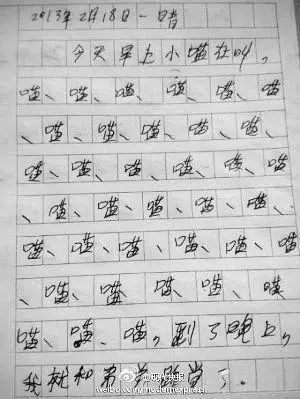 2013年2月18日一晴
今天早上小喵在叫，
喵、喵、喵、喵、喵、喵
、喵、喵、喵、喵、喵、
喵、喵、喵、喵、喵、喵
、喵、喵、喵、喵、喵、
喵、喵、喵、喵、喵、喵
、喵、喵、喵、喵、喵
喵、喵、喵，到了晚上，
我就和弟弟睡觉了.
@现代快报
weibo.com/modernexpress